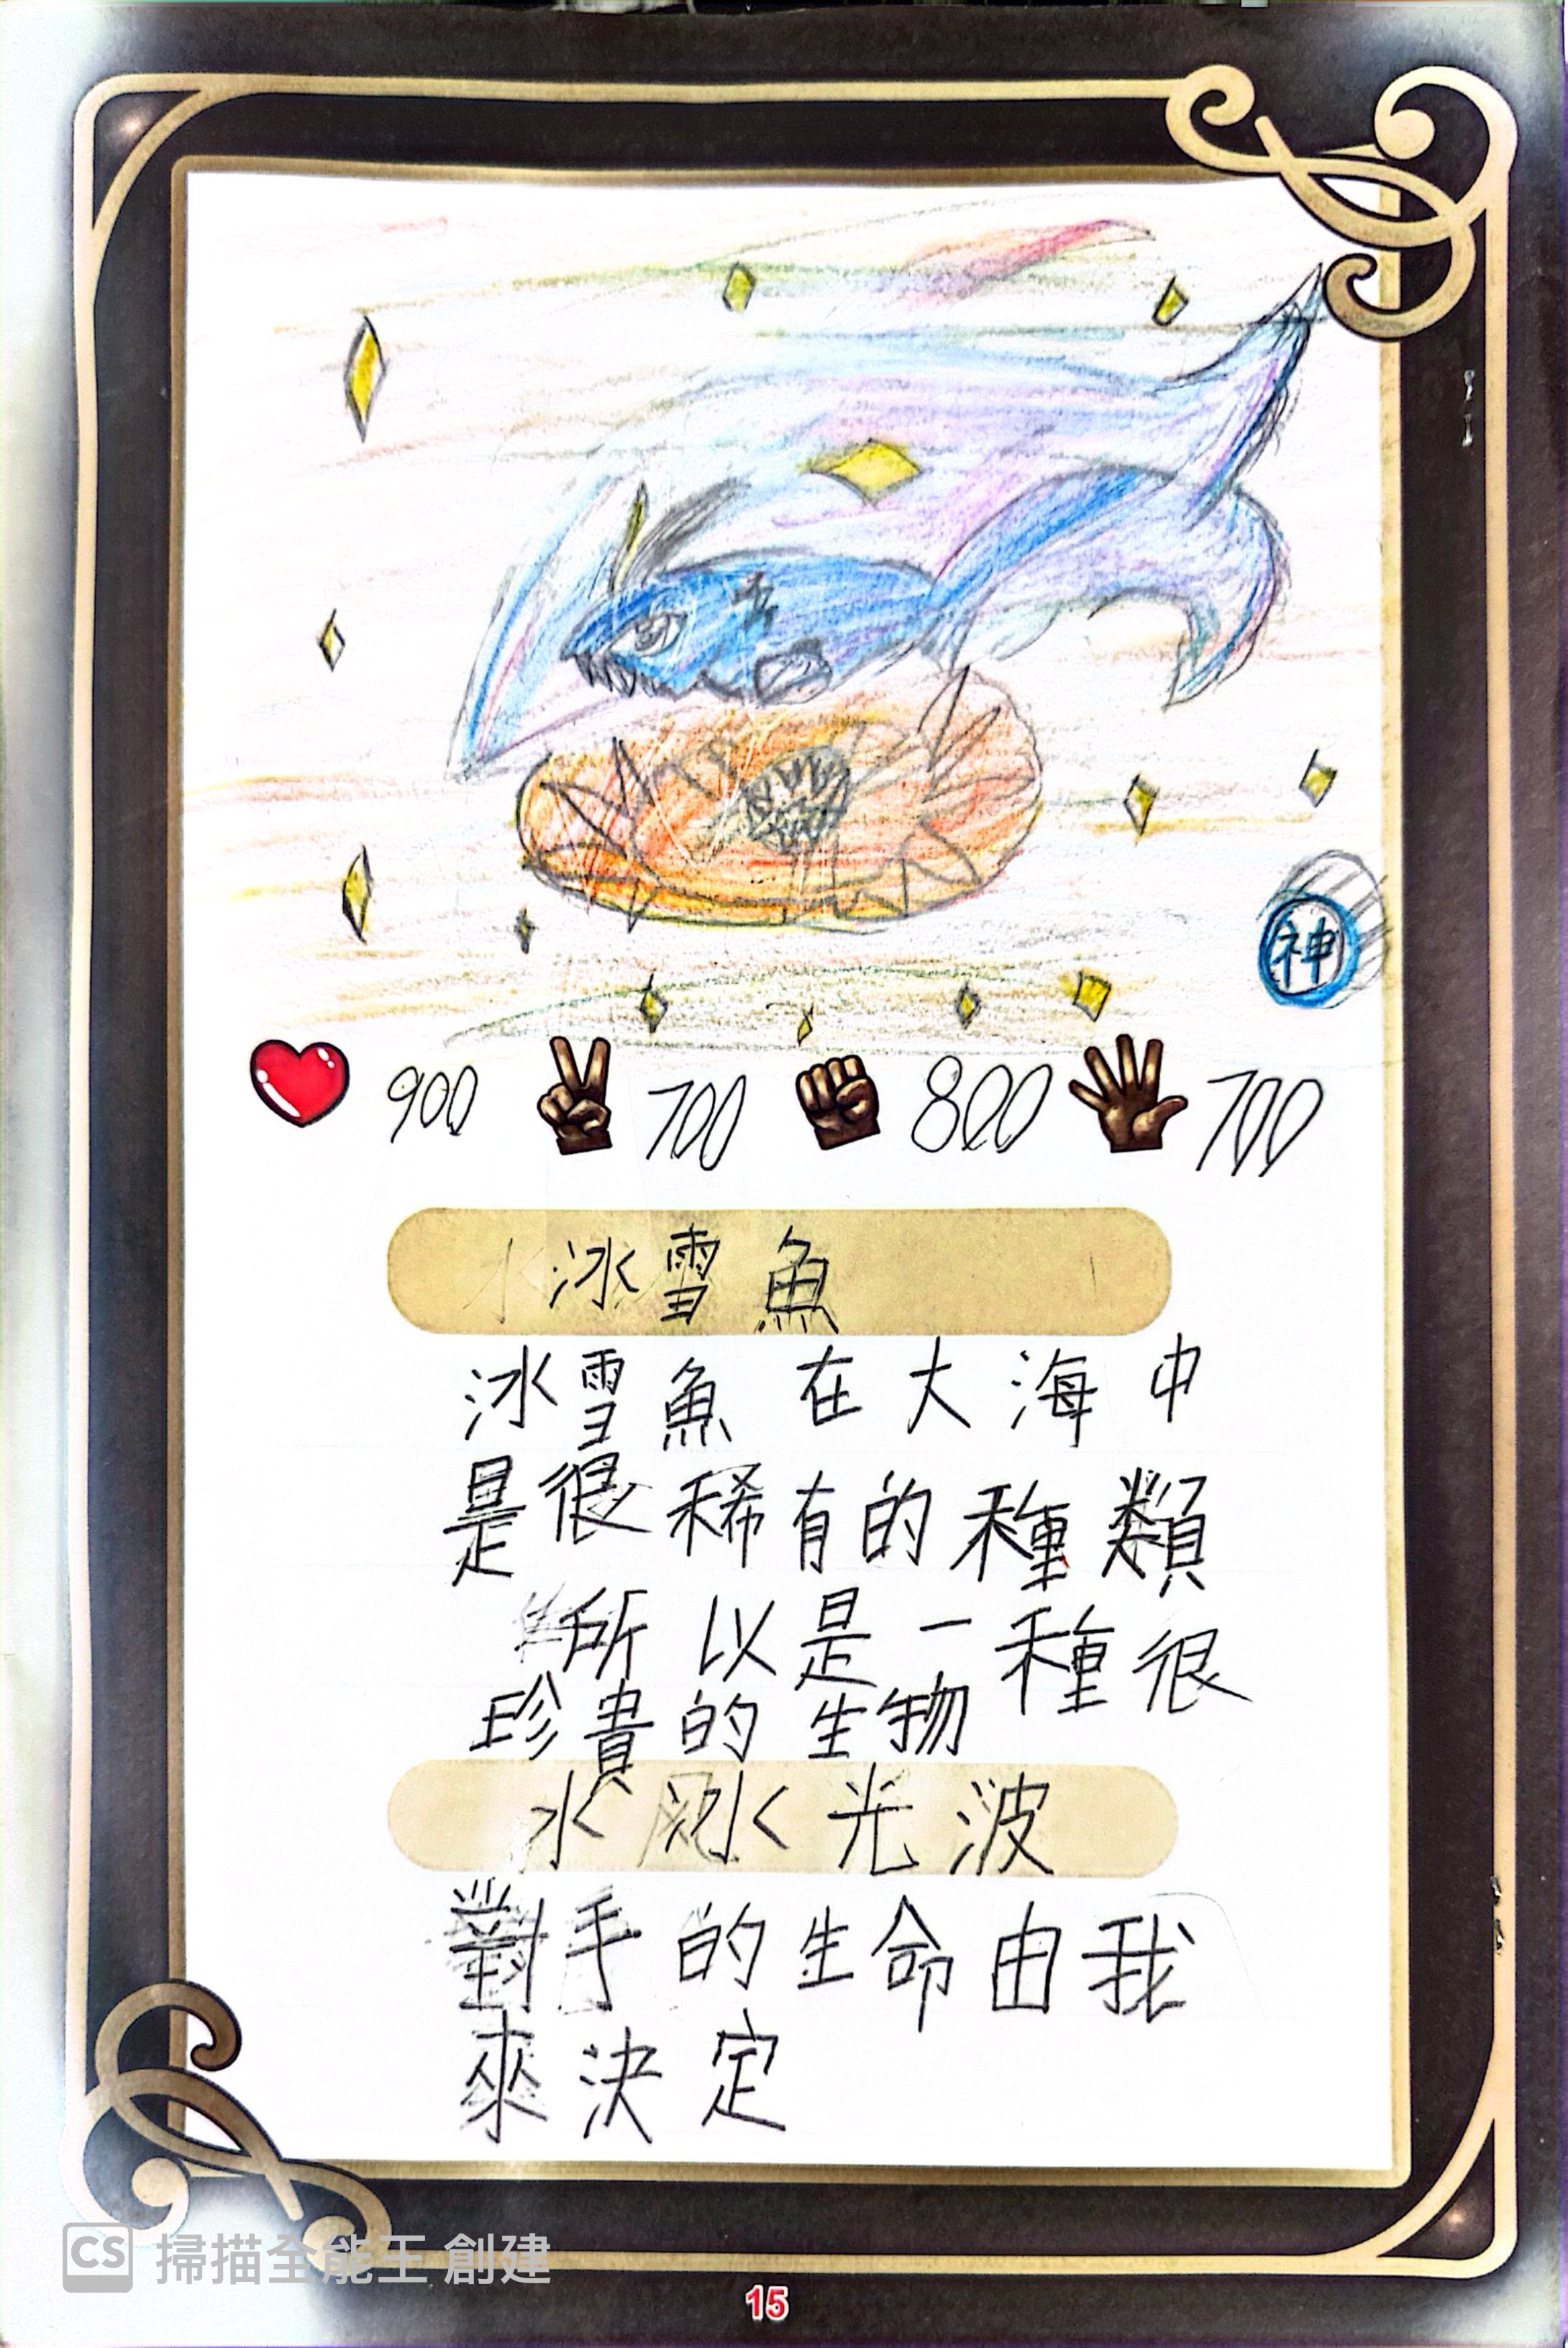 神
900 700 800 700
冰雪魚
冰雪魚在大海中
是很稀有的種類
所以是一種很
珍貴的生物
水冰光波
對手的生命由我
來決定
CS 掃描全能王 創建
15